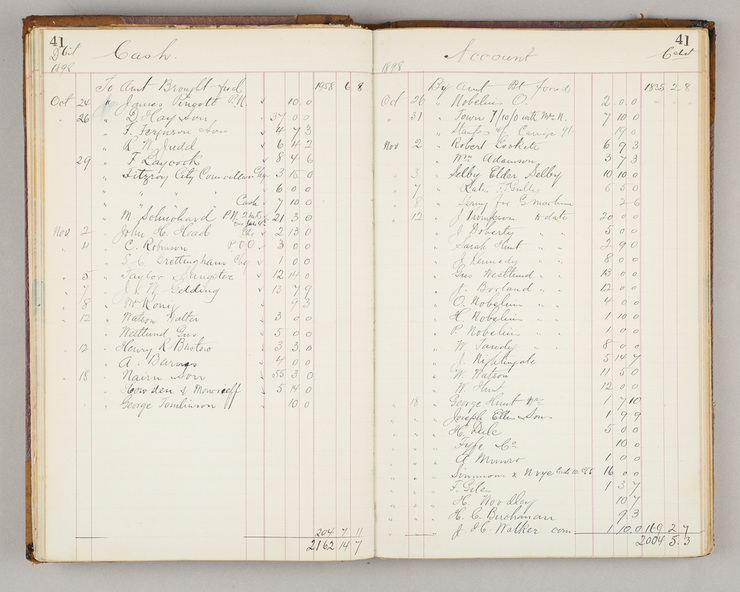 41
Cash.
1898
To Amt Brought fwd 1958 6 8
Oct 24 James 10 0
" 26 " D. Hay & Son 37 0 0
" F. Ferguson & Son 4 7 3
" R W Judd 6 4 2
" 29 " F Laycock 8 4 6
" Fitzroy City Council 3 15 0
" " " " 6 0 0
" " " Cash 7 10 0
" M. 21 3 0
Nov 2 " John H. Head 2 13 0
" 11 " C. Robinson P.O.O 3 0 0
" S. C. Brettingham Chq 1 0 0
" 5 " Taylor & Sangster 12 14 0
" 7 " J. W. Gedding 13 7 9
" 8 " Mr König 9 3
" 12 " Watson Walter 3 0 0
" Westlund Gus 5 0 0
" 12 " Henry R 3 3 0
" A. Barnes 4 0 0
" 18 " Nairn & Son 55 3 0
" Howden & Moncrieff 5 14 0
" George Tomlinson 10 0
204 7 11
2162 14 7
41
Account
1898
By Amt Bt forwd 1835 2 8
Oct 26 " Nobelius O. 2 0 0
" 31 " Town 7/10/0 with Mr N. 7 10 0
" 19 0
Nov 2 " Robert Lockett 6 9 3
" " Wm Adamson 3 7 3
" 3 " Selby Elder Selby 10 10 0
" 7 " 6 5 0
" 8 " 2 6
" 12 " J. Thompson to date 20 0 0
" J. Doherty " " 5 0 0
" Sarah Hunt " " 2 9 0
" J. Kennedy " " 8 0 0
" Gus Westlund " " 13 0 0
" J. Borland " " 12 0 0
" O. Nobelius " " 4 0 0
" H. Nobelius " " 1 10 0
" P. Nobelius " " 1 0 0
" W. Tandy " " 8 0 0
" J. Nightingale 5 14 7
" W. Watson 11 5 0
" W. Hunt 12 0 0
" 18 " George Hunt 1 7 10
" Joseph Ellis & Sons 1 9 9
" H. Dale 5 0 0
" Fyfe & Co 10 0
" A Munro 1 0 0
" 16 0 0
" F. Giles 1 3 7
" H. Woodley 10 7
" H. C. Buchanan 9 3
" J. & C. Walker com 1 10 0 169 2 7
2004 5 3